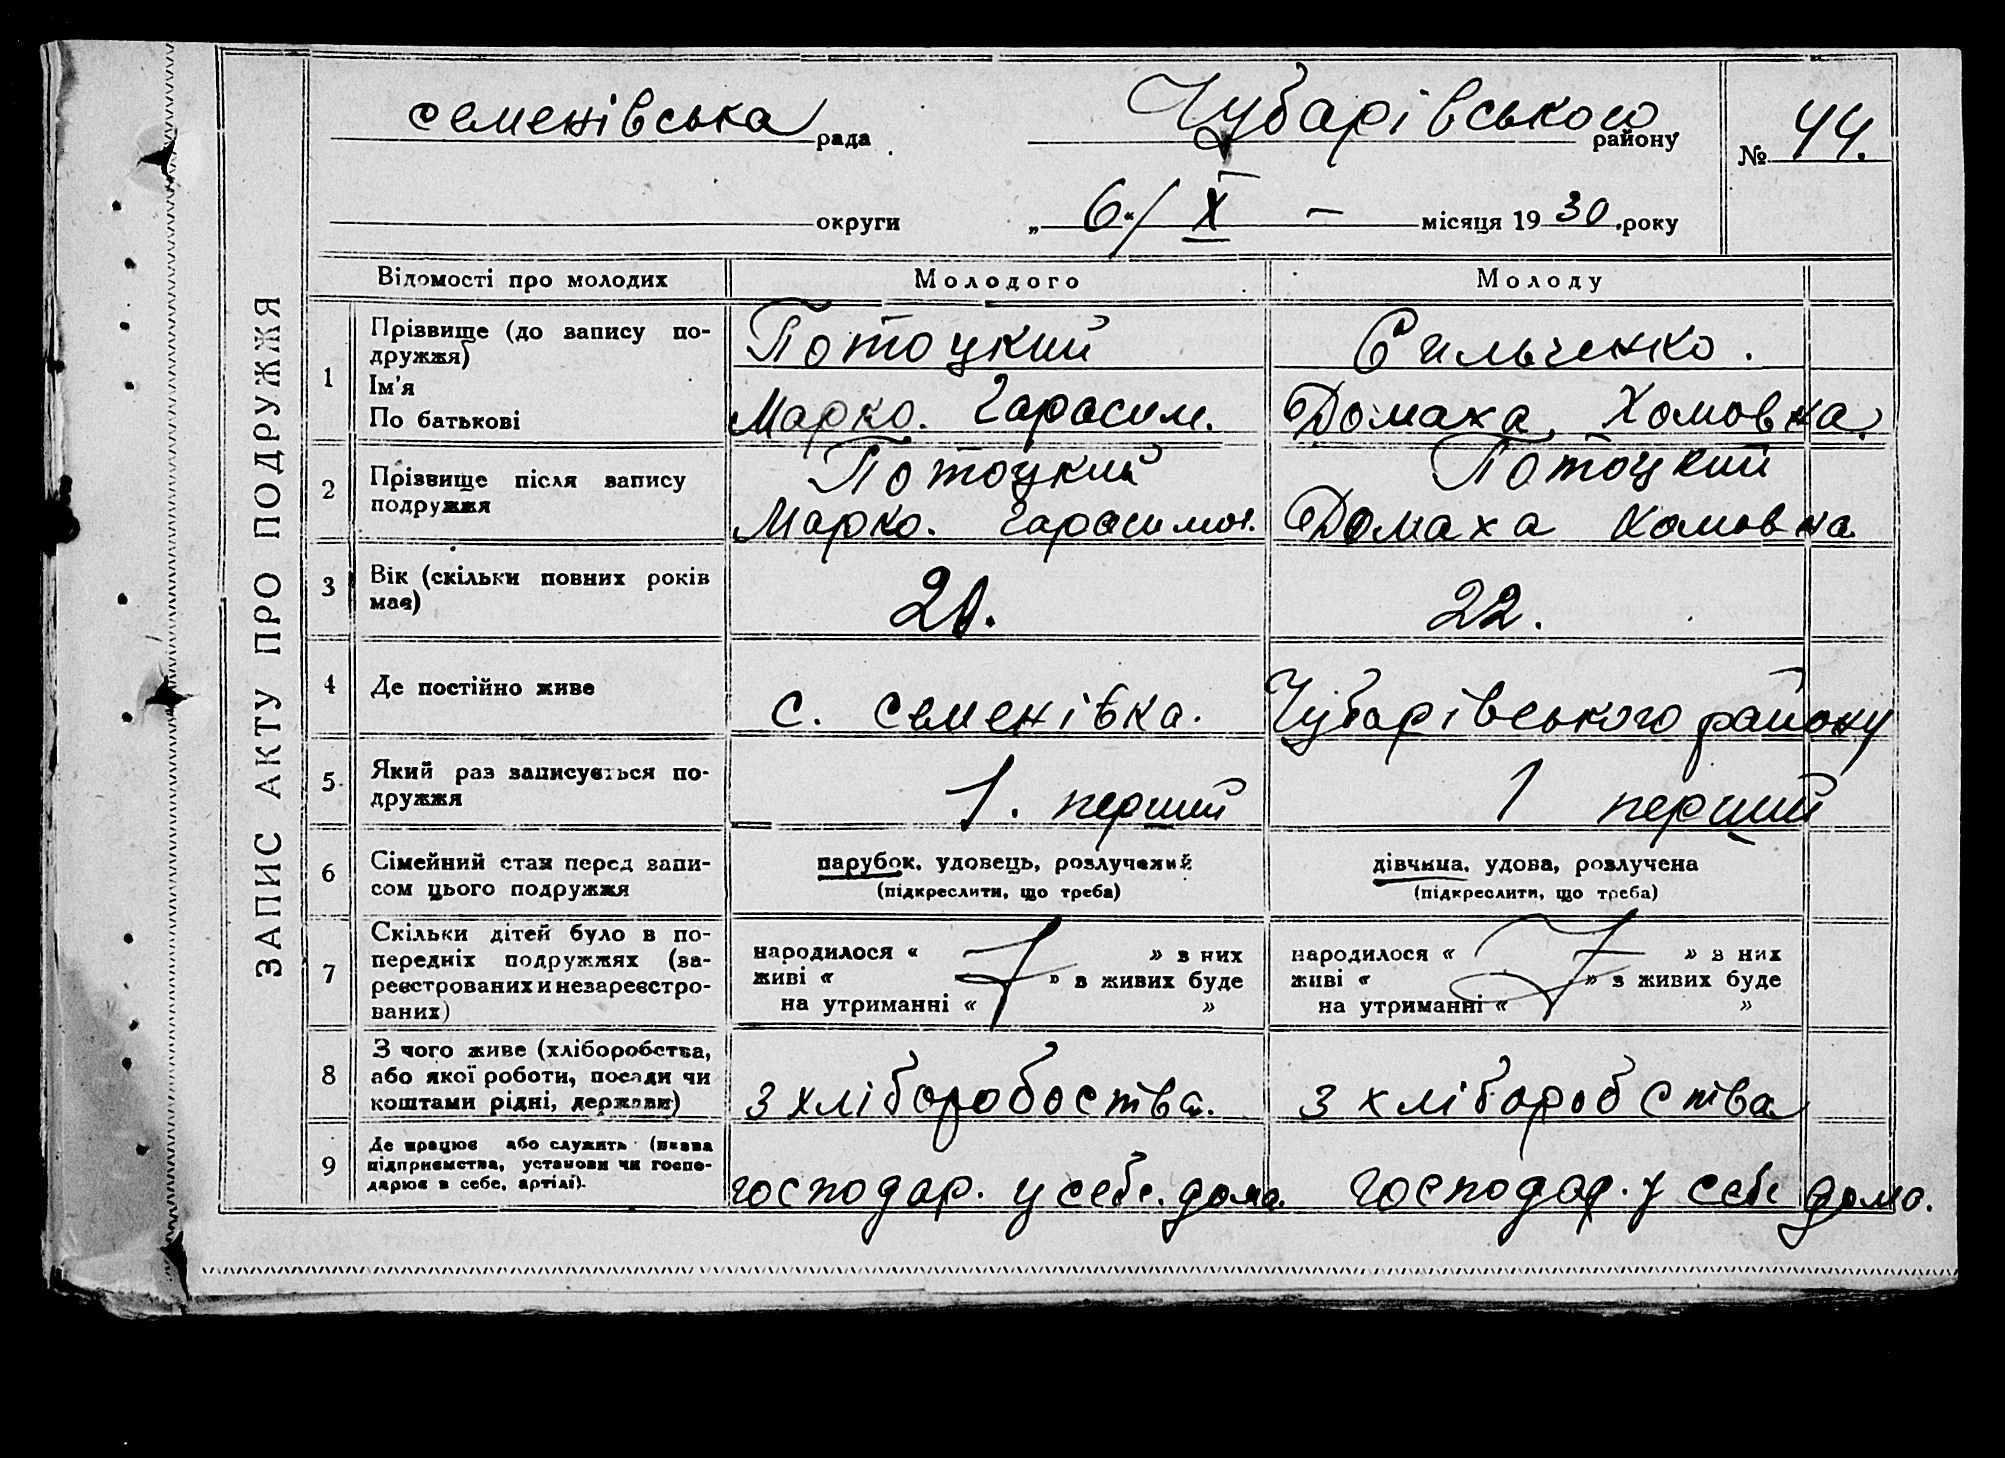 ЗАПИС АКТУ ПРО ПОДРУЖЖЯ
семенівська рада Чубарівського району № 44.
округи „ 6 “ / X – місяця 1930 .року
Відомості про молодих Молодого Молоду
1 Прізвище (до запису по-
дружжя)
Ім'я
По батькові
Потоцкий
Марко. Гарасим.
Сильченко.
Домаха Хомовна.
2 Прізвище після запису
подружжя
Потоцкий
Марко.
Потоцкий
Домаха Хомовна
3 Вік (скільки повних років
має)
22.
4 Де постійно живе
с. семенівка. Чубарівського району
5 Який раз записується по-
дружжя
1. перший 1 перший
6 Сімейний стан перед запи-
сом цього подружжя
парубок, удовець, розлучений
(підкреслити, що треба)
дівчина, удова, розлучена
(підкреслити, що треба)
7 Скільки дітей було в по-
передніх подружжях (за-
реєстрованих и незареєстро-
ваних)
народилося « » з них
живі « » з живих буде
на утриманні « »
народилося « » з них
живі « » з живих буде
на утриманні « »
8 З чого живе (хліборобства,
або якої роботи, посади чи
коштами рідні, держави)
з хліборобоства. з хліборобства
9 Де працює або служить (назва
підприємства, установи чи госпо-
дарює в себе, артілі).
господар. у себе. дома. господар. у себе дома.